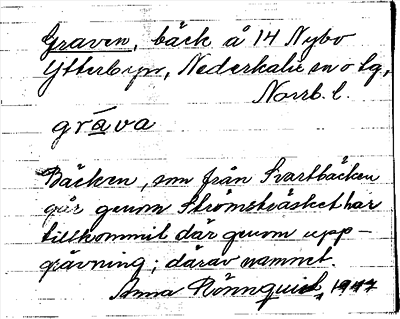 Graven, bäck å 14 Nybo
Ytterbyn, Nederkalix sn o lg,
Norrb. l.
gráva
Bäcken, som från Svartbäcken
går genom Strömsträsket har
tillkommit där genom upp-
grävning; därav namnet.
Anna Rönnquist, 1947